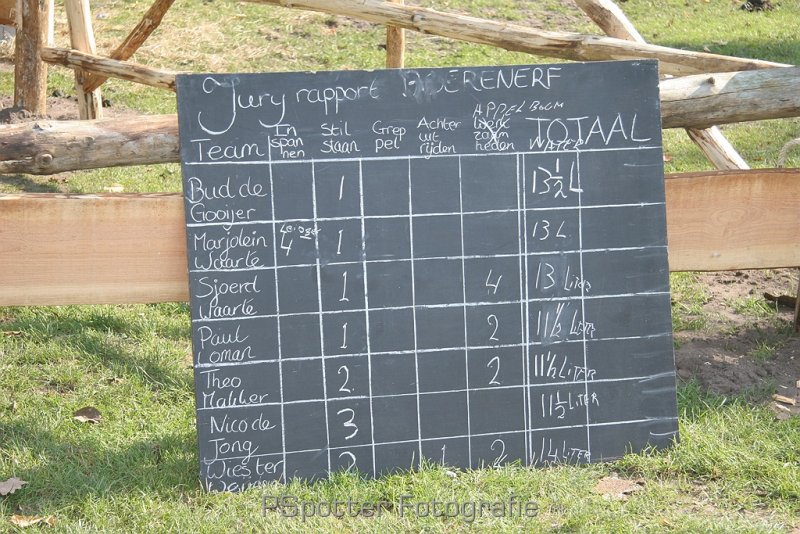 Jury rapport BOERENERF
Team In span hen Stil staan Grep pel Achter uit rijden APPEL BOOM zaam heden WATER TOTAAL
Bud de Gooijer 1 13 1/2 L
Marjolein Waarte 4 1 13 L
Sjoerd Waarte 1 4 13 LITER
Paul Loman 1 2 11 1/2 LITER
Theo Makker 2 2 11 1/2 LITER
Nico de Jong 3 11 1/2 LITER
Wietster 2 1 2 14 LITER
PSpotter Fotografie